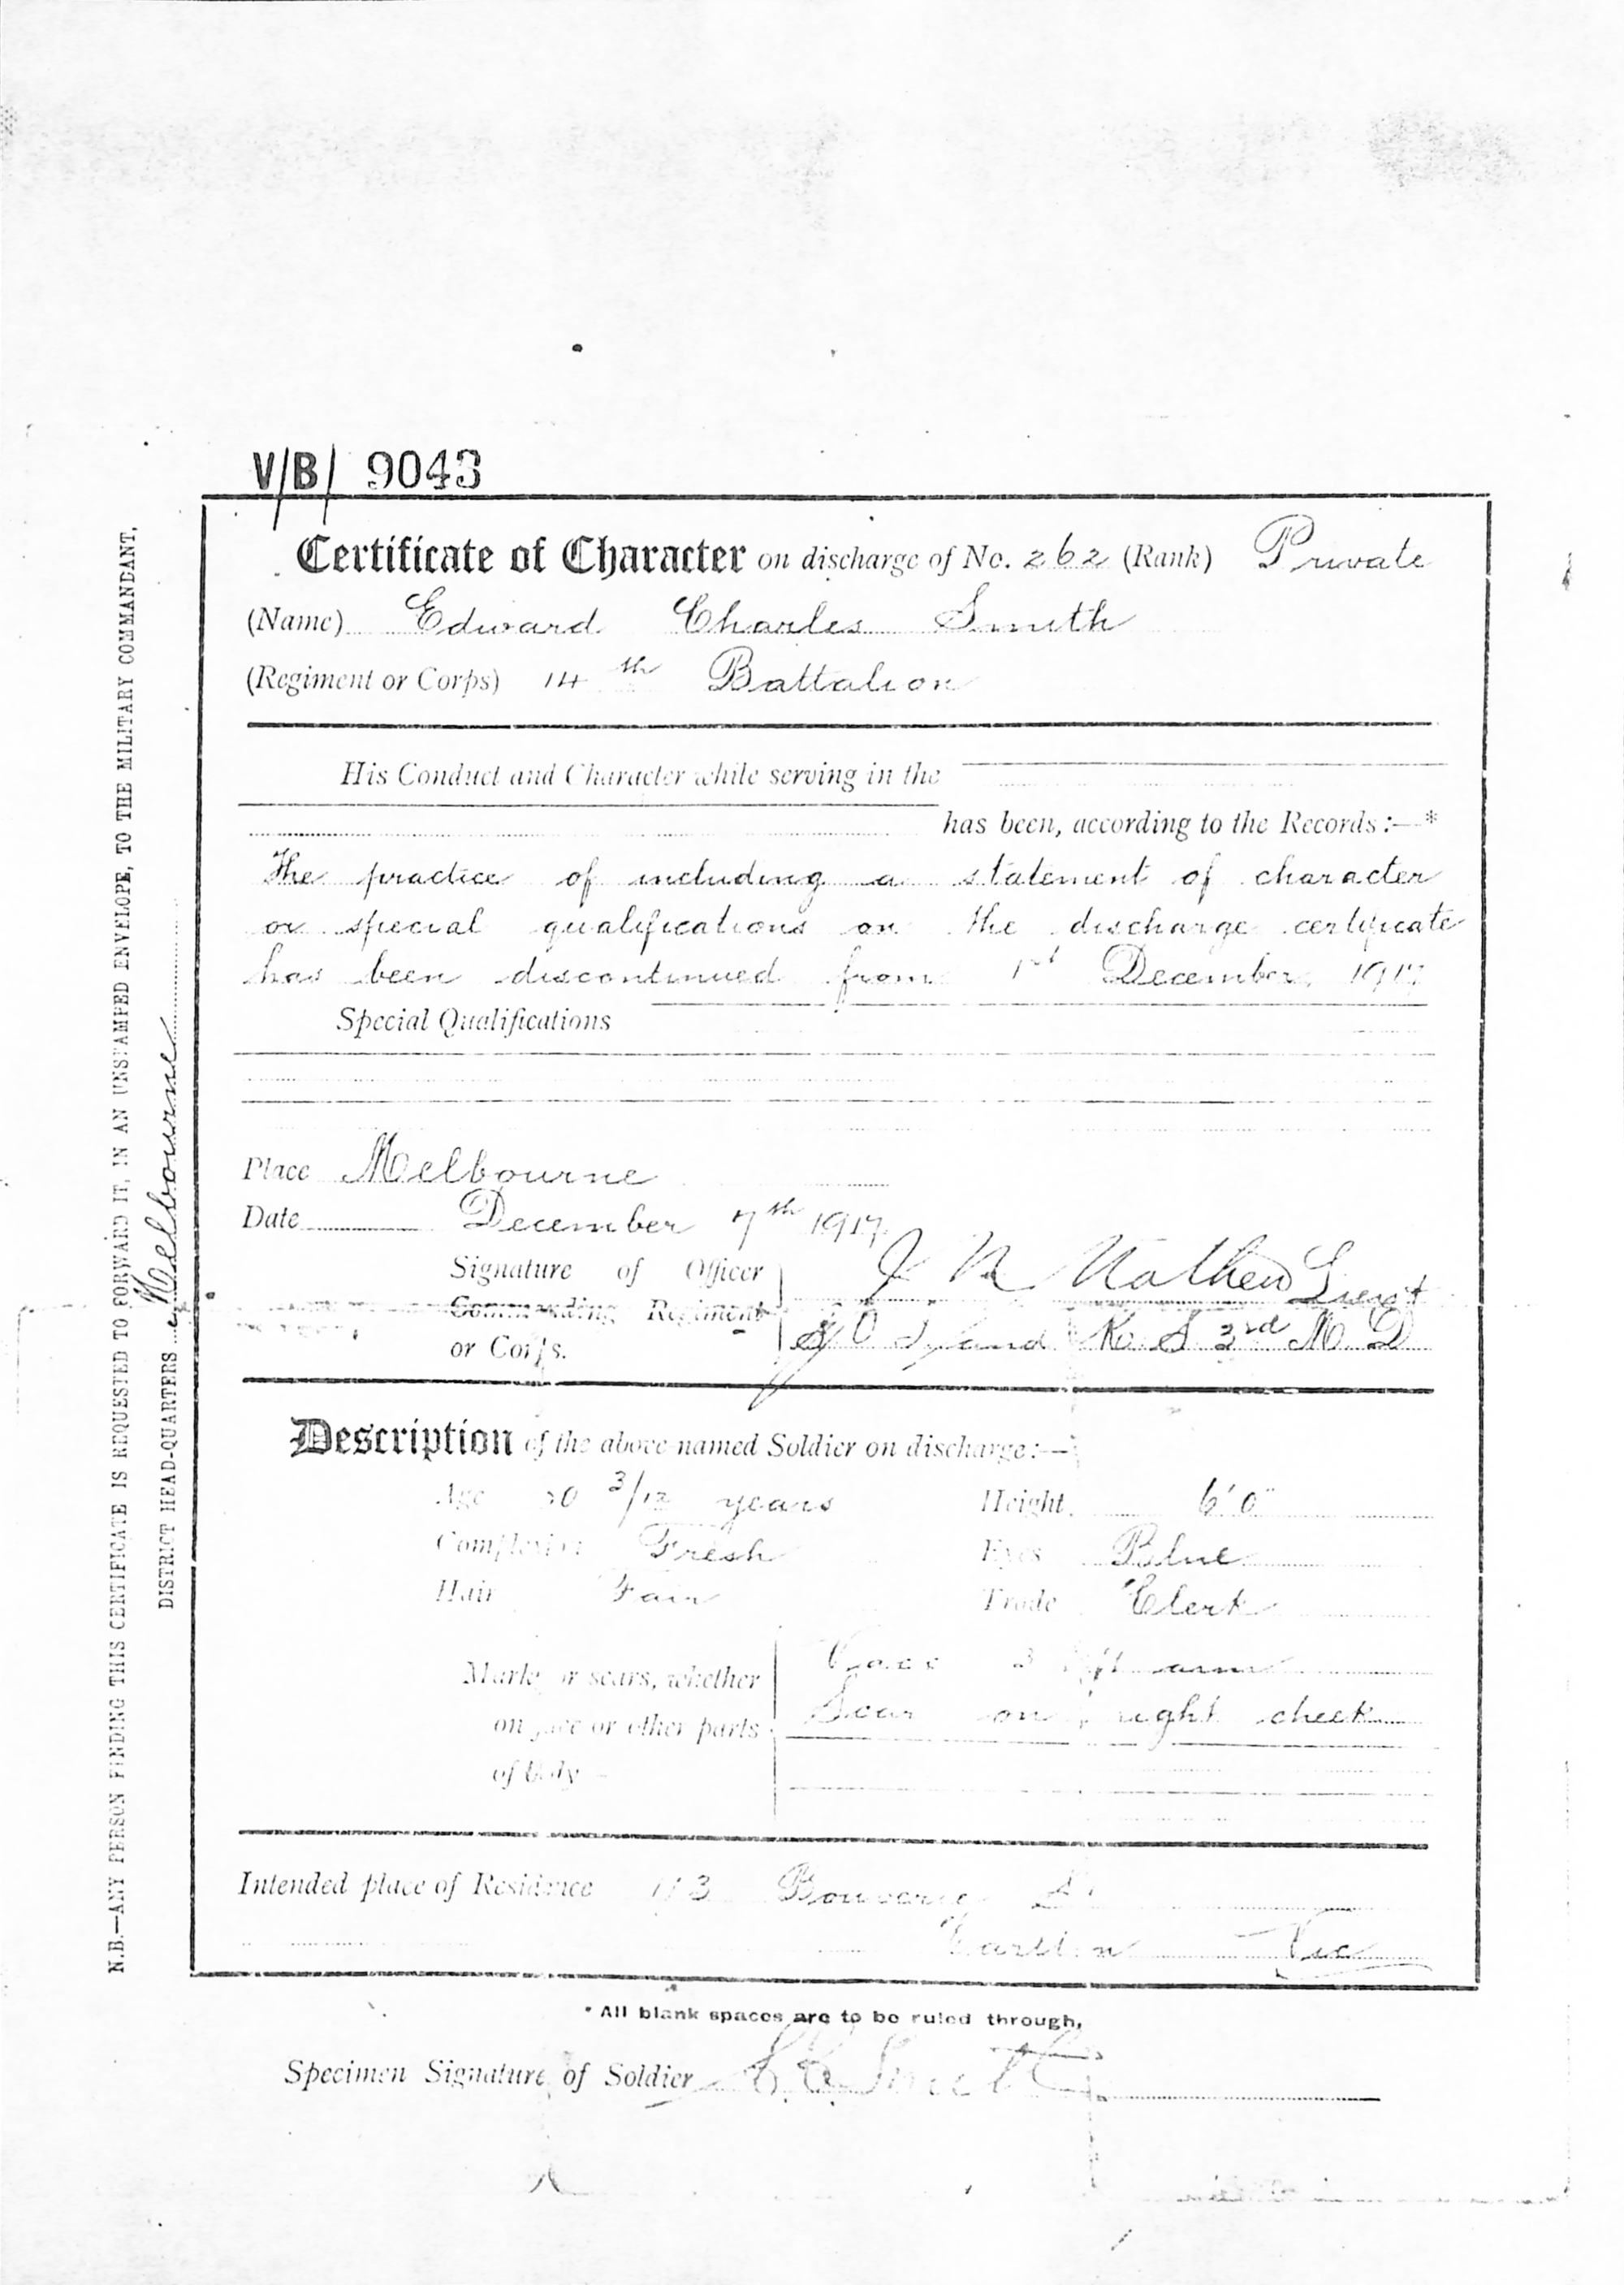 V/B/ 9043
Certificate of Character on discharge of No. 262 (Rank) Private
(Name) Edward Charles Smith
(Regiment or Corps) 14th Battalion
His Conduct and Character while serving in the
has been, according to the Records:—*
The practice of including a statement of character
or special qualifications on the discharge certificate
has been discontinued from 1st December, 1917
Special Qualifications
Place Melbourne
Date December 7th 1917
Signature of Officer
Commanding Regiment
or Corps.
Lieut
3rd M. D
Description of the above-named Soldier on discharge:—
Age 3/12 years Height 6' 0"
Complexion Fresh Eyes Blue
Hair Fair Trade Clerk
Marks or scars, whether
on face or other parts
of body
arm
Scar on right cheek
Intended place of Residence
Vic
* All blank spaces are to be ruled through.
Specimen Signature of Soldier
N.B.—ANY PERSON FINDING THIS CERTIFICATE IS REQUESTED TO FORWARD IT, IN AN UNSTAMPED ENVELOPE, TO THE MILITARY COMMANDANT,
DISTRICT HEAD-QUARTERS Melbourne